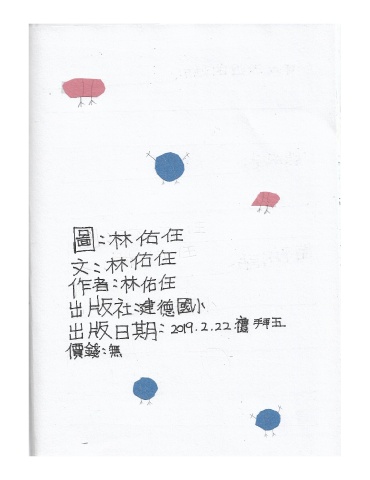 圖:林佑任
文:林佑任
作者:林佑任
出版社:建德國小
出版日期:2019.2.22禮拜五
價錢:無